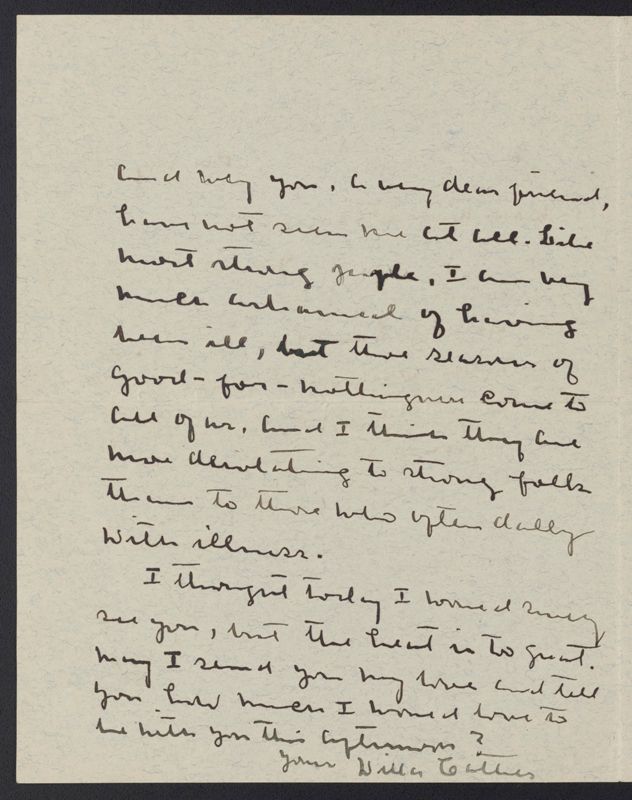 and why you, a very dear friend,
have not seen me at all. Like
most strong people, I am very
much ashamed of having
been ill, but those seasons of
good-for-nothingness come to
all of us, and I think they are
more devastating to strong folks
than to those who often dally
with illness.
I thought today I would surely
see you, but the heat is too great.
May I send you my love and tell
you how much I would love to
be with you this afternoon?
Yours Willa Cather